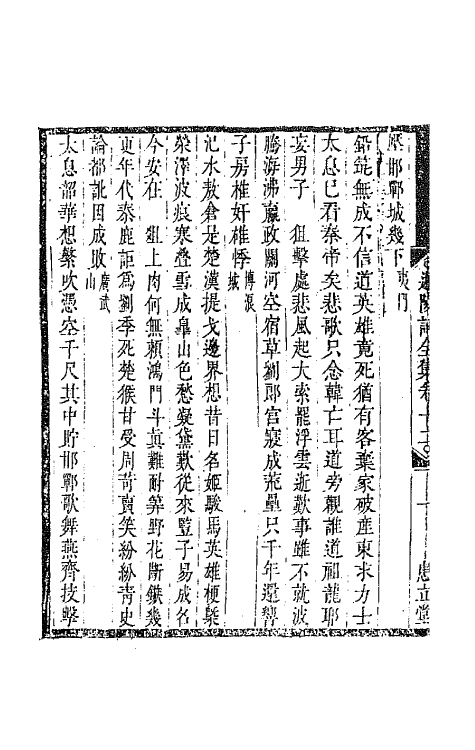 邯鄲城幾下夷門
鉛筑無成不信道英雄竟死猶有客棄家破產東求力士
太息已看秦帝矣悲歌只念韓亡耳道旁觀誰道祖龍耶
妄男子　狙擊處悲風起大索罷浮雲逝歎事雖不就波
騰海沸嬴政關河空宿草劉郎宮寢成荒壘只千年還響
子房椎奸雄悸博浪城
汜水敖倉是楚漢提戈邊界想昔日名姬駿馬英雄梗槩
滎澤波痕寒疊雪成臯山色愁凝黛歎從來豎子易成名
今安在　俎上肉何無賴鴻門斗真難耐筭野花斷鏃幾
更年代秦鹿詎為劉季死楚猴甘受周苛賣笑紛紛青史
論都訛因成敗廣武山
太息韶華想繁吹憑空千尺其中貯邯鄲歌舞燕齊技擊
詞全集卷十二
十
惠立堂